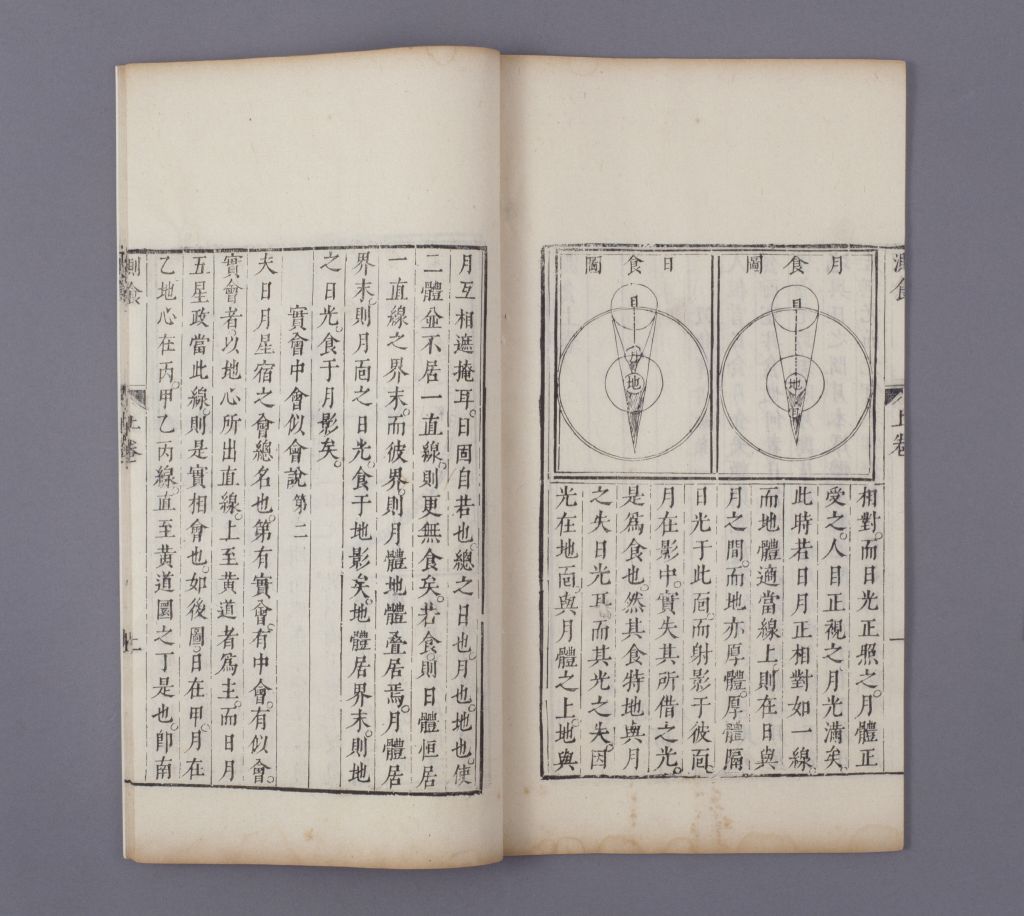 測食
上卷
月食圖
日
地
月
日食圖
日
月
地
相對。而日光正照之。月體正
受之。人目正視之月光滿矣
此時若日月正相對如一線
而地體適當線上。則在日與
月之間。而地亦厚體。厚體隔
日光于此靣。而射影于彼靣
月在影中。實失其所借之光。
是爲食也。然其食特地與月
之失日光耳。而其光之失。因
光在地靣。與月體之上。地與
月互相遮掩耳。日固自若也。總之日也。月也。地也。使
二體並不居一直線。則更無食矣。若食。則日體恒居
一直線之界末。而彼界。則月體地體叠居焉。月體居
界末。則月靣之日光。食于地影矣。地體居界末。則地
之日光。食于月影矣。
實會中會似會說第二
夫日月星宿之會總名也。第有實會。有中會。有似會。
實會者。以地心所出直線。上至黃道者爲主。而日月
五星政當此線。則是實相會也。如後圖。日在甲。月在
乙地心在丙。甲乙丙線。直至黃道圜之丁是也。卽南
測食
上卷